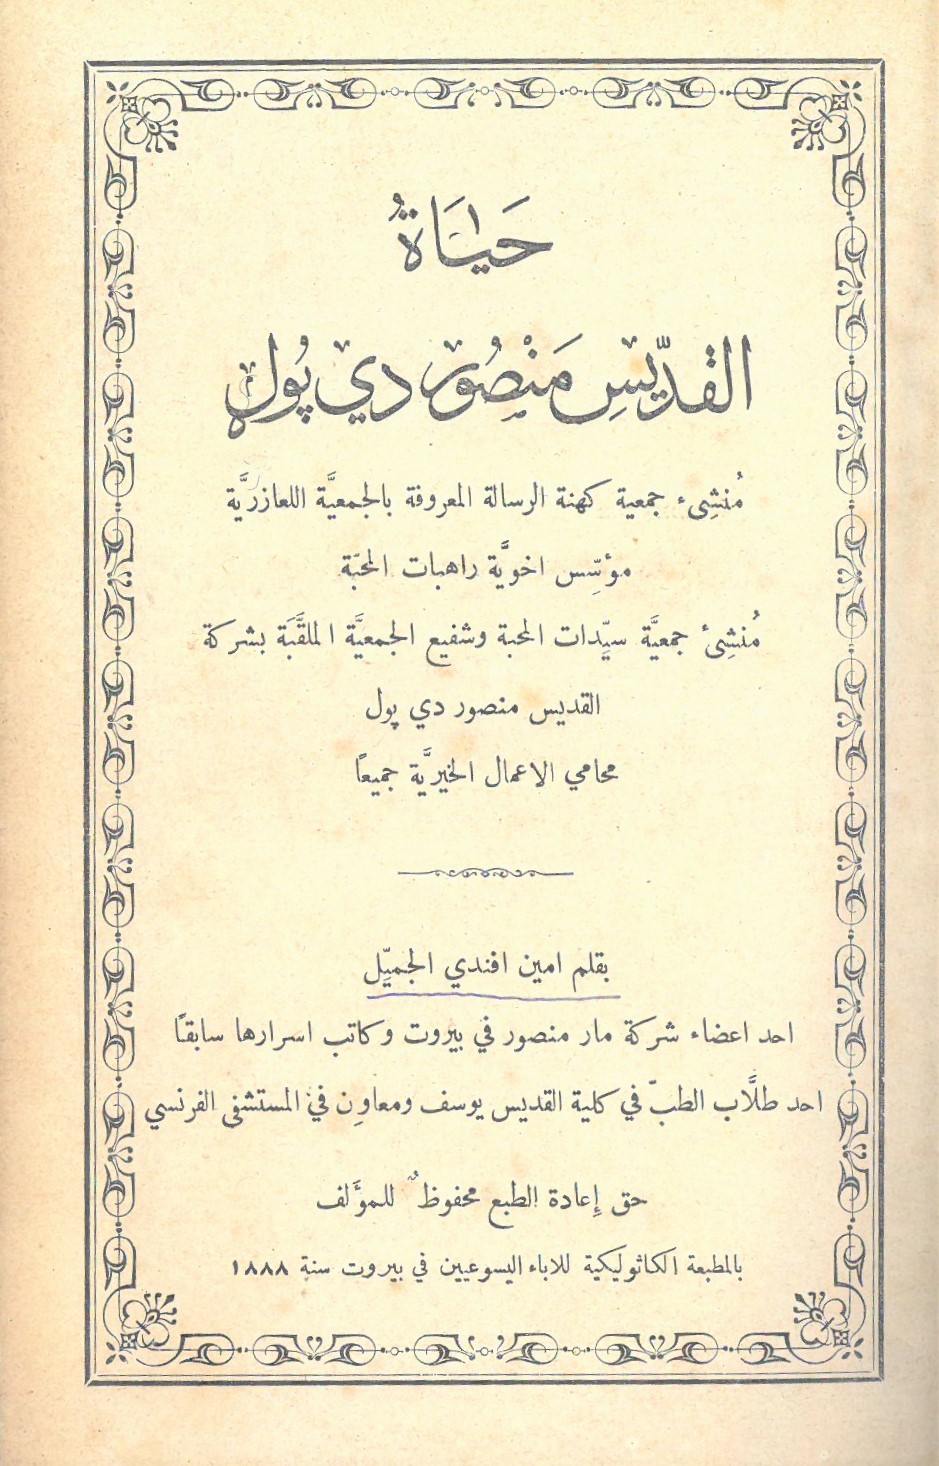 حَيَاةُ
القدّيسِ مَنْصُور دي پُول
مُنشِىء جمعية كهنة الرسالة المعروفة بالجمعيَّة اللعازريَّة
مؤسِّس اخويَّة راهبات المحبّة
مُنشِئ جمعيَّة سيِّدات المحبة وشفيع الجمعيَّة الملقَّبَة بشركة
القديس منصور دي پول
محامي الاعمال الخيريَّة جميعاً
بقلم امين افندي الجميِّل
احد اعضاء شركة مار منصور في بيروت وكاتب اسرارها سابقاً
احد طلَّاب الطبّ في كلية القديس يوسف ومعاوِن في المستشفى الفرنسي
حق إِعادة الطبع محفوظٌ للمؤَلف
بالمطبعة الكاثوليكية للاباء اليسوعيين في بيروت سنة ١٨٨٨